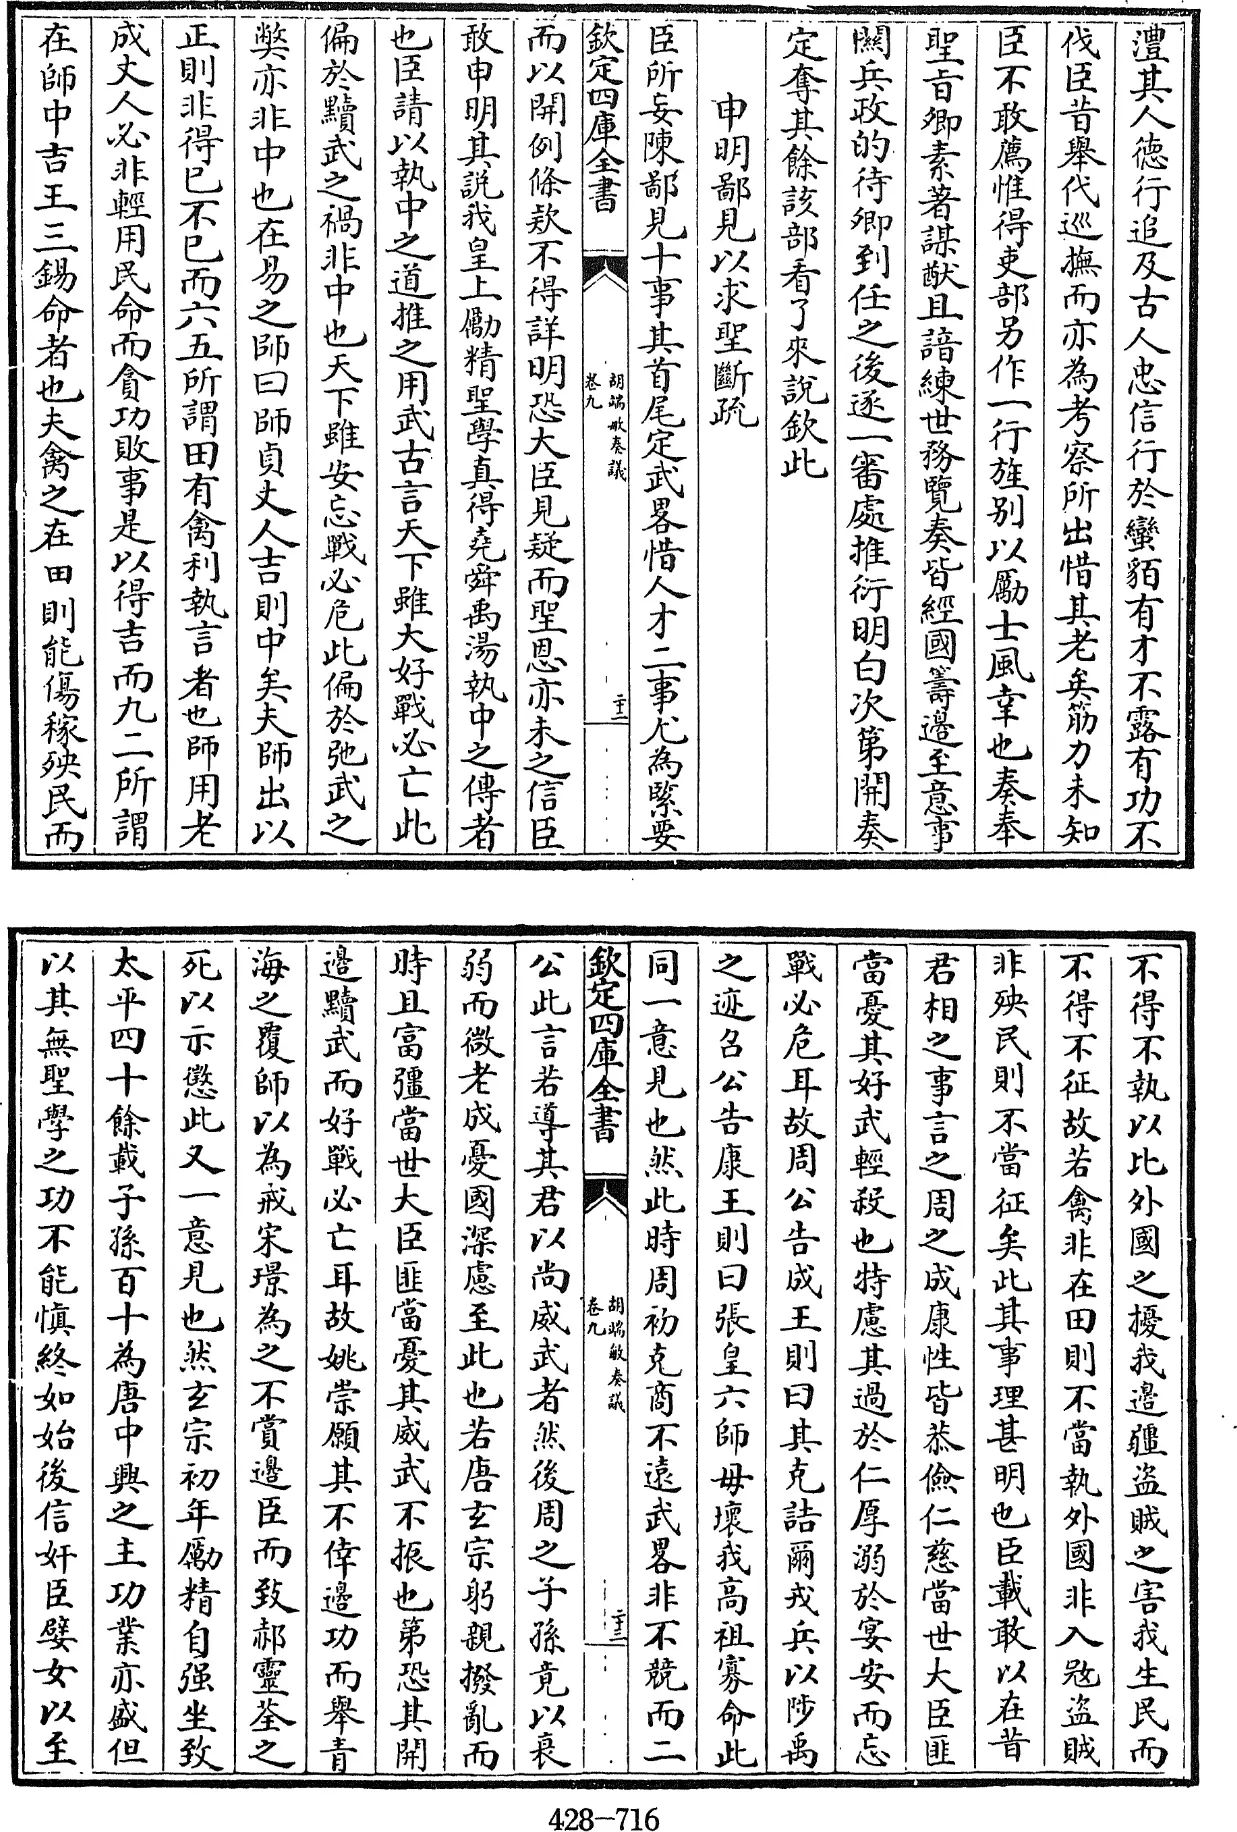 澧其人德行追及古人忠信行於蠻貊有才不露有功不
伐臣昔舉代巡撫而亦為考察所出惜其老矣筋力未知
臣不敢薦惟得吏部另作一行旌别以勵士風幸也奏奉
聖旨卿素著謀猷且諳練世務覽奏皆經國籌邉至意事
關兵政的待卿到任之後逐一審處推衍明白次第開奏
定奪其餘該部看了來說欽此
申明鄙見以求聖斷疏
臣所妄陳鄙見十事其首尾定武畧惜人才二事尤為緊要
欽定四庫全書
胡端敏奏議
卷九
二十二
而以開例條款不得詳明恐大臣見疑而聖恩亦未之信臣
敢申明其説我皇上勵精聖學真得堯舜禹湯執中之傳者
也臣請以執中之道推之用武古言天下雖大好戰必亡此
偏於黷武之禍非中也天下雖安忘戰必危此偏於弛武之
弊亦非中也在易之師曰師貞丈人吉則中矣夫師出以
正則非得已不已而六五所謂田有禽利執言者也師用老
成丈人必非輕用民命而貪功敗事是以得吉而九二所謂
在師中吉王三錫命者也夫禽之在田則能傷稼殃民而
不得不執以比外國之擾我邉疆盗賊之害我生民而
不得不征故若禽非在田則不當執外國非入寇盗賊
非殃民則不當征矣此其事理甚明也臣載敢以在昔
君相之事言之周之成康性皆恭儉仁慈當世大臣匪
當憂其好武輕殺也特慮其過於仁厚溺於宴安而忘
戰必危耳故周公告成王則曰其克詰爾戎兵以陟禹
之迹召公告康王則曰張皇六師毋壞我高祖寡命此
同一意見也然此時周初克商不遠武畧非不競而二
欽定四庫全書
胡端敏奏議
卷九
二十三
公此言若導其君以尚威武者然後周之子孫竟以衰
弱而微老成憂國深慮至此也若唐玄宗躬親撥亂而
時且富彊當世大臣匪當憂其威武不振也第恐其開
邉黷武而好戰必亡耳故姚崇願其不倖邉功而舉青
海之覆師以為戒宋璟為之不賞邉臣而致郝靈荃之
死以示懲此又一意見也然玄宗初年勵精自强坐致
太平四十餘載子孫百十為唐中興之主功業亦盛但
以其無聖學之功不能慎終如始後信奸臣嬖女以至
428-716